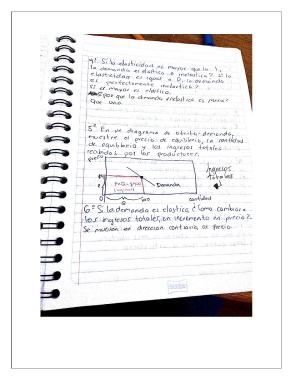 4º Si la elasticidad es mayor que 1,
la demanda es elastica o inelastica? Si la
elasticidad es igual a 0, la demanda
es perfectamente inelastica?
Si es mayor es elastica.
que la demanda inelastica es menor
que uno.
5º En un diagrama de oferta-demanda,
muestre el precio de equilibrio, la cantidad
de equilibrio y los ingresos totales
recibidos por los productores.
precio
Ingresos
totales
Demanda
0
100
cantidad
6º Si la demanda es elastica ¿Como cambiara
los ingresos totales, en incremento en precio?
Se mueven en direccion contraria, al precio